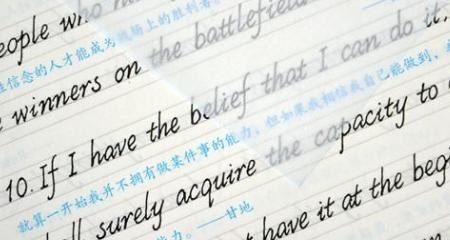 eople who have
信念的人才能成为战场上的胜利者。
winners on the battlefield
10. If I have the belief that I can do it,
就算一开始我并不拥有做某件事的能力，但如果我相信我自己能做到，
surely acquire the capacity to
能力。——甘地
have it at the begi